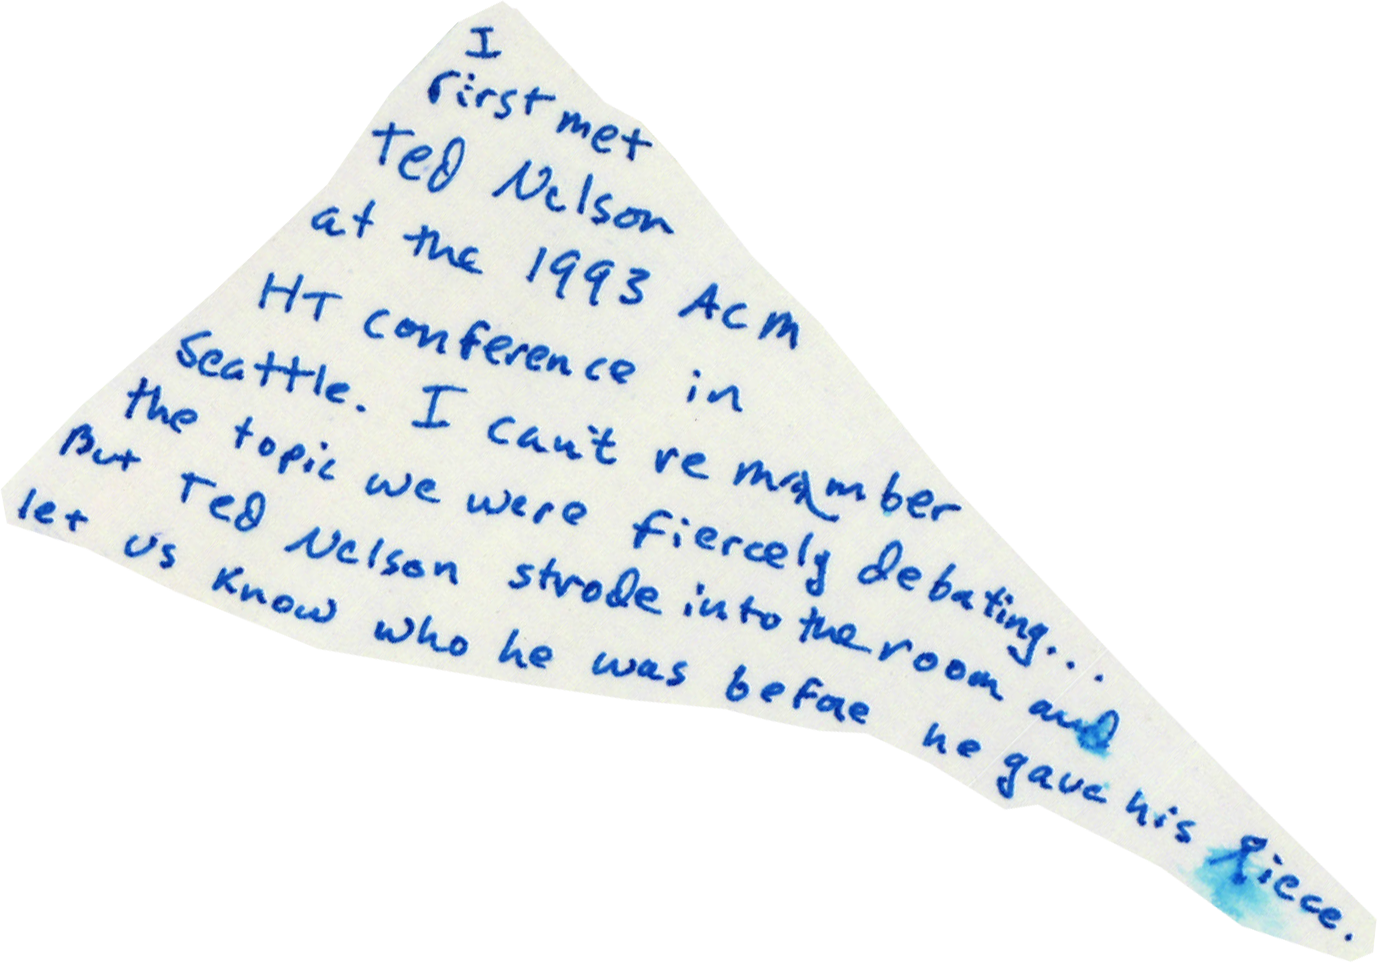 I
first met
Ted Nelson
at the 1993 ACM
HT conference in
Seattle. I can't remember
the topic we were fiercely debating...
But Ted Nelson strode into the room and
let us know who he was before he gave his piece.